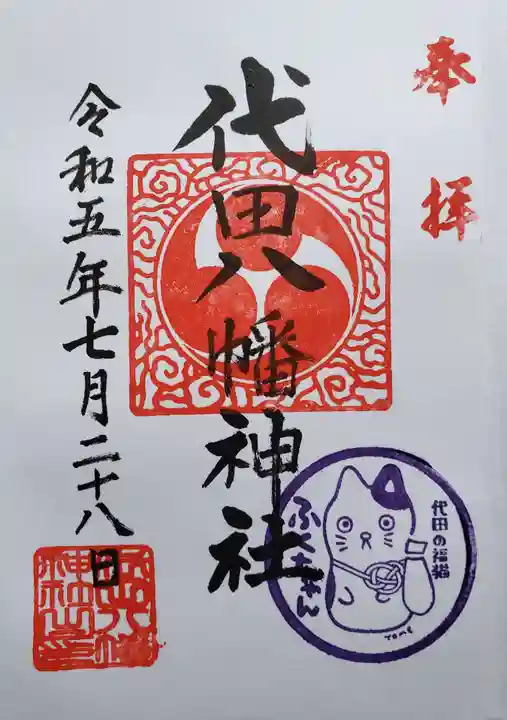 奉拝
代田八幡神社
令和五年七月二十八日
代田の福猫
ふくちゃん
TOME